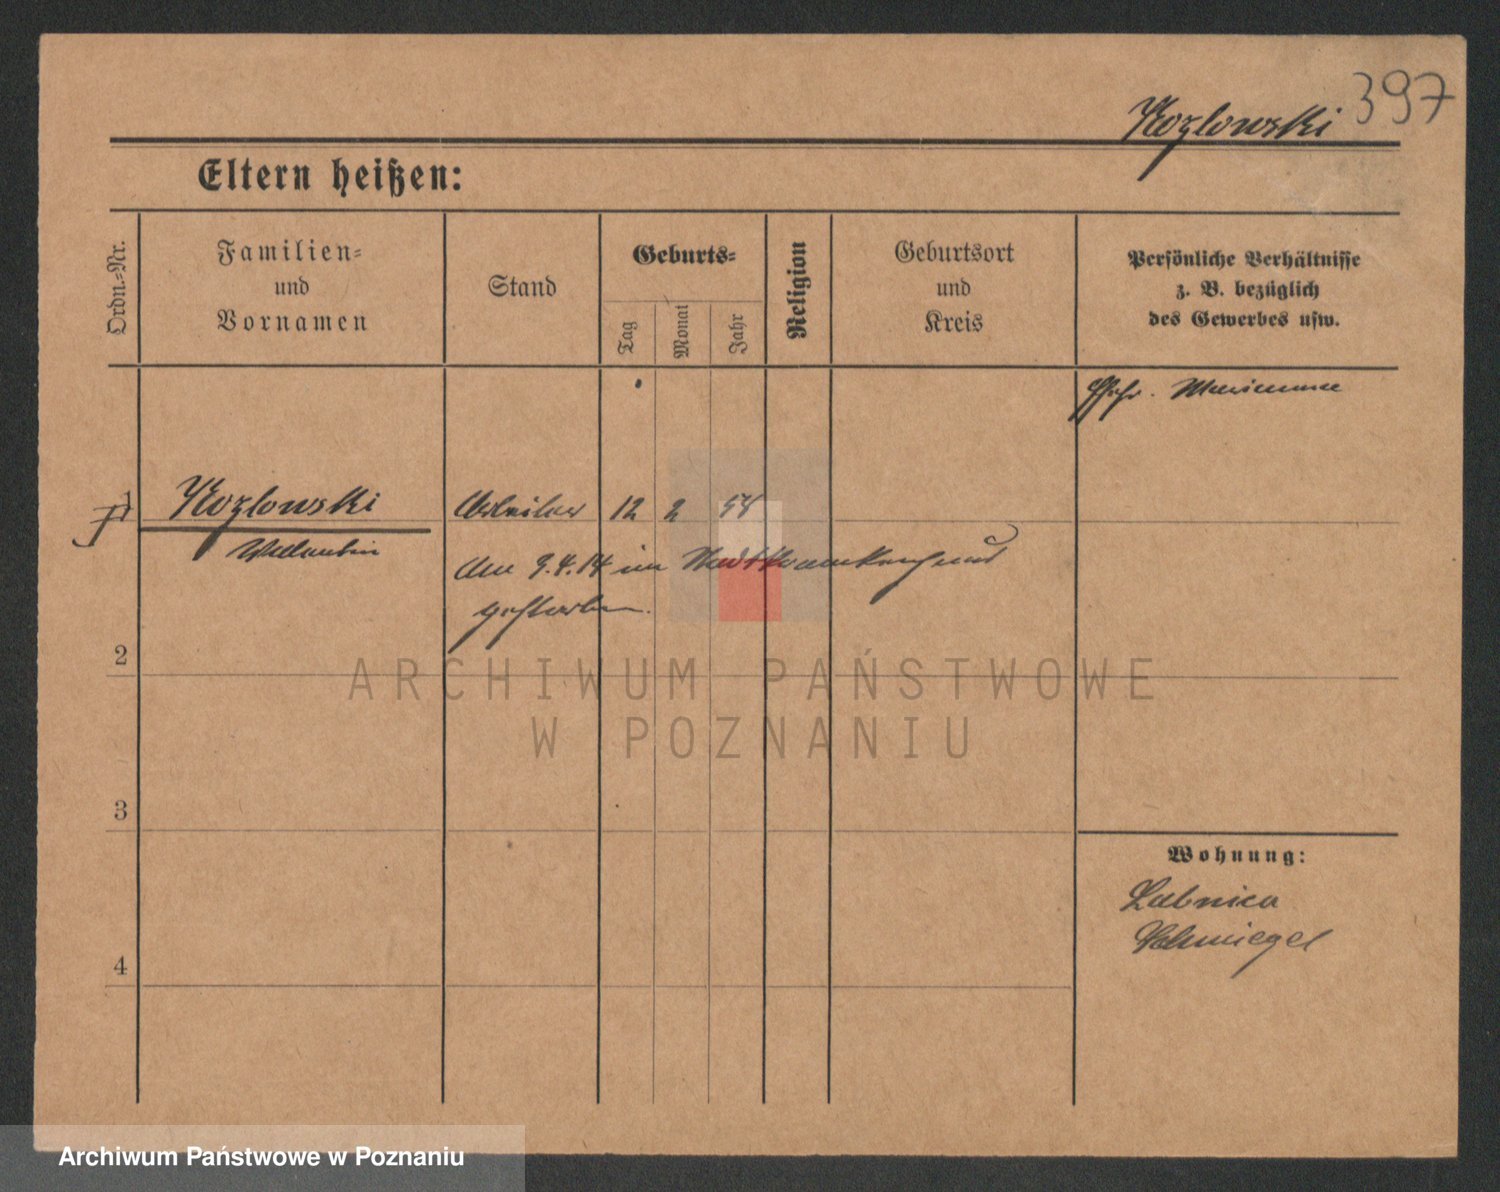 397
Kozlowski
Eltern heißen:
Ordn.-Nr.
Familien-
und
Vornamen
Stand
Geburts-
Tag
Monat
Jahr
Religion
Geburtsort
und
Kreis
Persönliche Verhältnisse
z. B. bezüglich
des Gewerbes usw.
Ehefr. Marianna
1
Kozlowski
Arbeiter 12 2
Valentin
Am 9.4.14 im Stadtkrankenhaus
gestorben.
2
ARCHIWUM PAŃSTWOWE
W POZNANIU
3
Wohnung:
Lubnica
Schmiegel
4
Archiwum Państwowe w Poznaniu